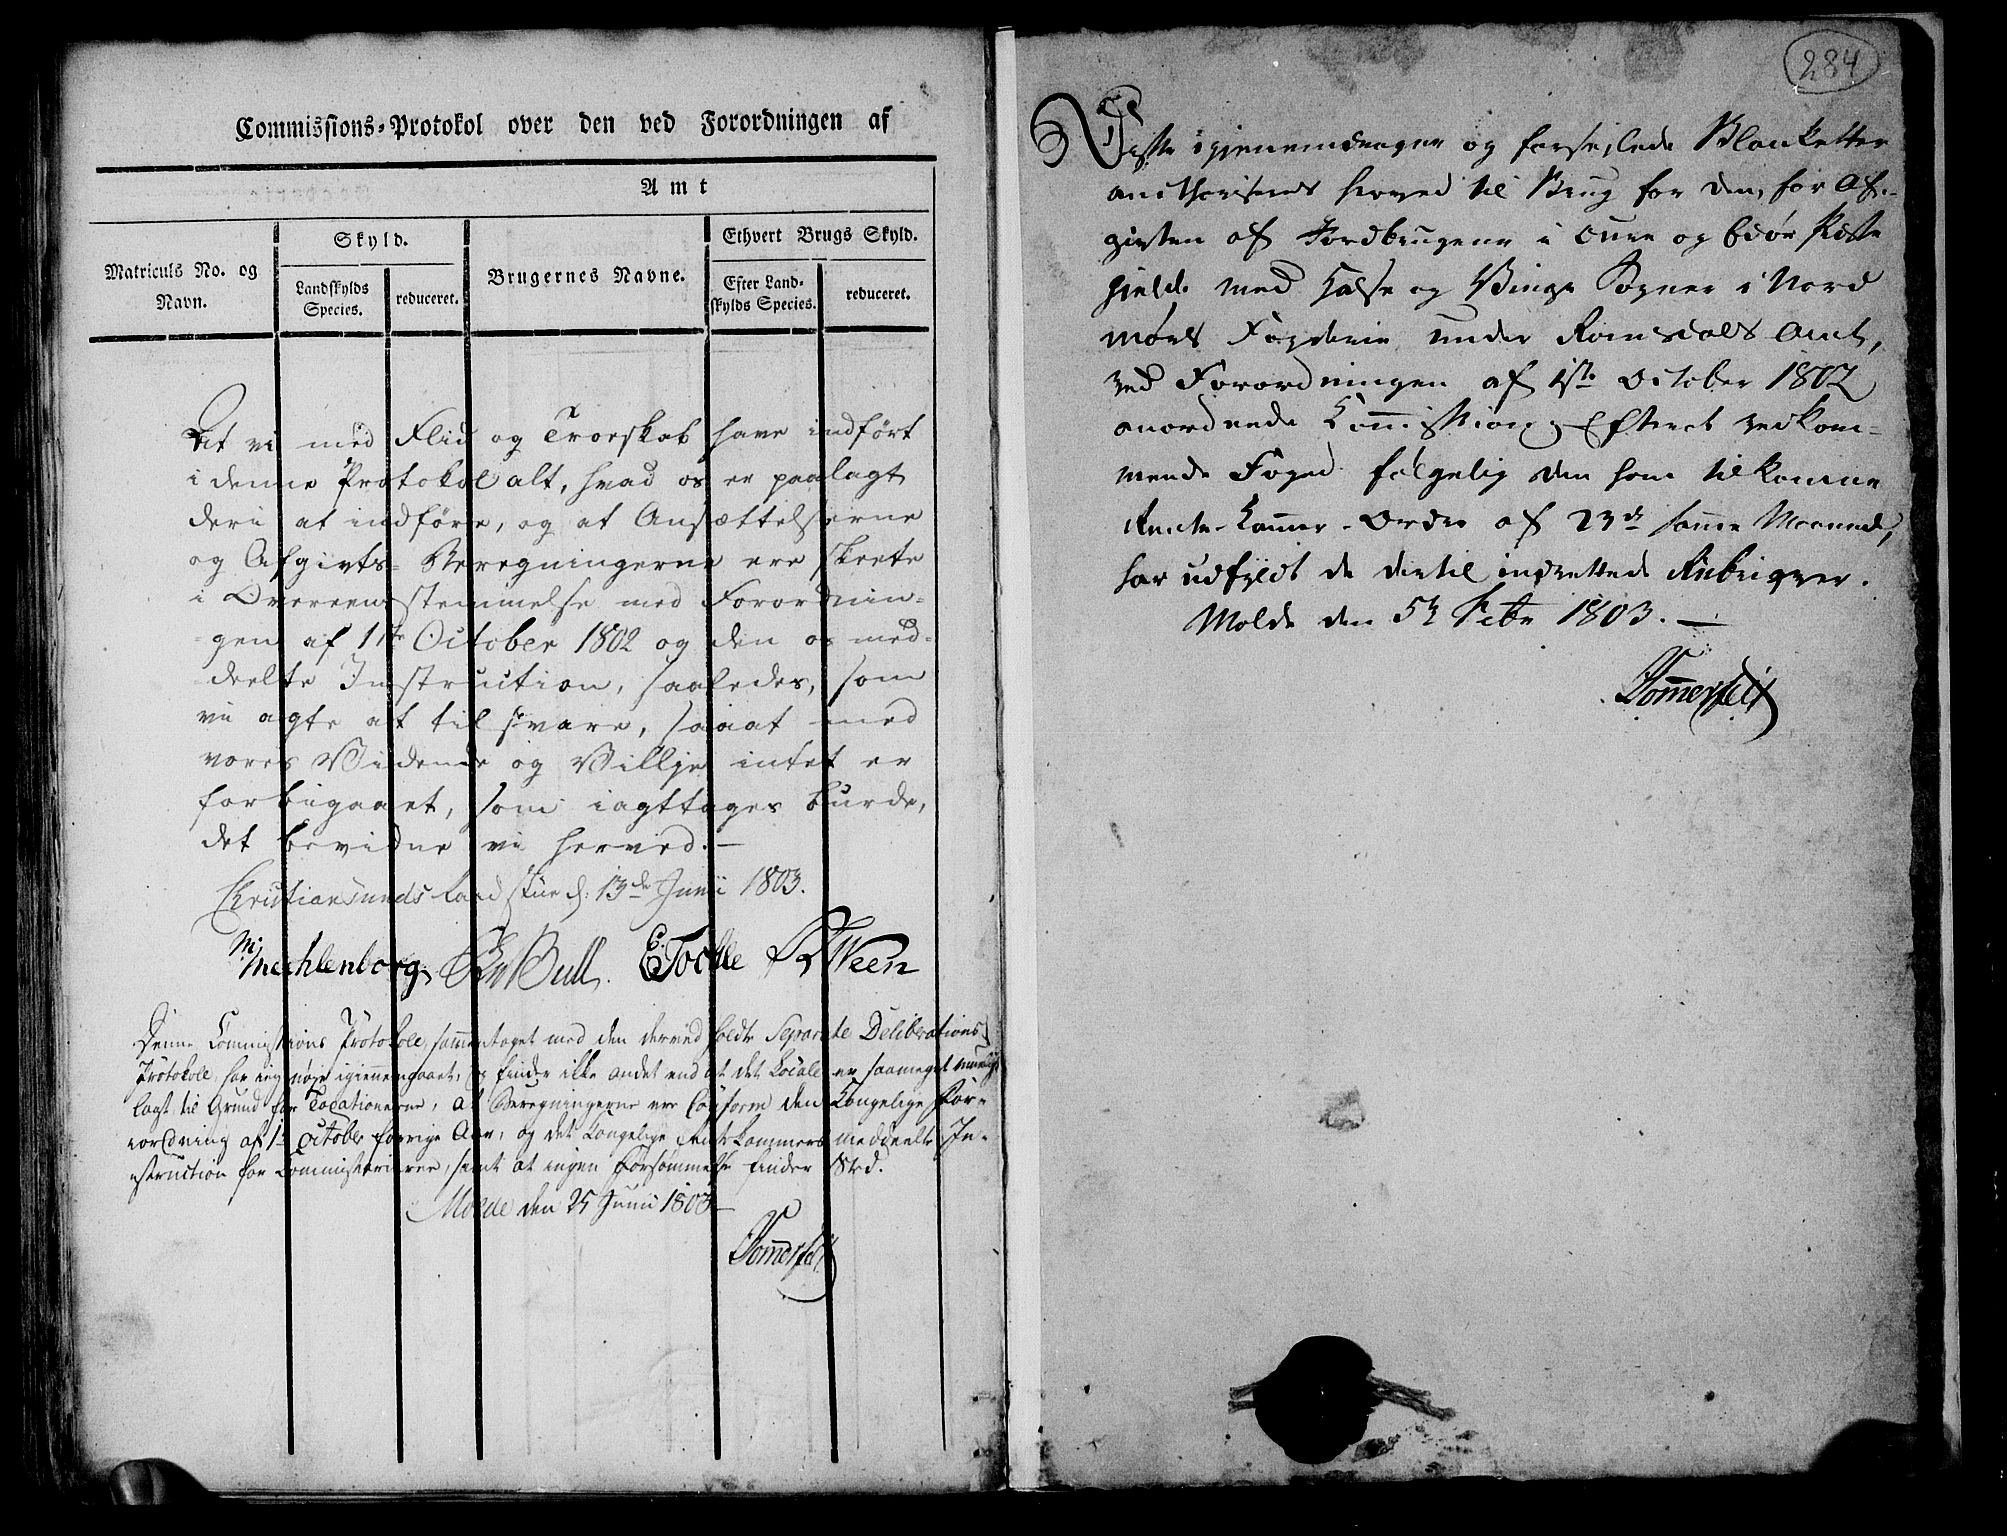 Commissions-Protokol over den ved Forordningen af
Amt
Matriculs No. og
Navn.
Skyld.
Landskylds
Species.
reduceret.
Brugernes Navne.
Ethvert Brugs Skyld.
Efter Land-
skylds Species.
reduceret.
At vi med Flid og Troeskab have indført
i denne Protokol alt, hvad os er paalagt
deri at indføre, og at Ansættelserne
og Afgivts-Beregningerne ere skeete
i Overeensstemmelse med Forordnin-
gen af 1ste October 1802 og den os med-
deelte Instruction, saaledes, som
vi agte at tilsvare, saaat med
vores Vidende og Villje intet er
forbigaaet, som iagttages burde,
det bevidne vi herved.—
Christiansunds Landstue d: 13de Junii 1803.
M. Mechlenborg. Bull. E. Tochle Ween
Denne Commissions Protokoll, sammentaget med den derved holdte Separate Deliberations
Protokoll, har jeg nøje igiennemgaaet, og finder ikke andet end at det Locale er saameget mueligt
lagt til Grund for Taxationerne, at Beregningerne ere Conform den Kongelige For-
ordning af 1ste October forrige Aar, og det Kongelige Rentekammers meddeelte In-
struction for Commissarierne, samt at ingen Forsømmelse finder Sted.
Molde den 25 Junii 1803—
Sommerfelt
284
Disse igjenemdragne og forseylede Blanketter
authoriseres herved til Brug for den, for Af-
giften af Jordbrugene i Oure og Edøe Præste
gjeld med Halse og Tinge Sogner i Nord
møers Fogderie under Romsdals Amt,
ved Forordningen af 1ste October 1802
anordnede Commission, Efterat vedkom-
mende Foged følgelig den ham tilkomne
Rente-Kammer-Ordre af 23de samme Maaned,
har udfyldt de dertil indrettede Rubriqver.
Molde den 5te Febr 1803.—
Sommerfelt